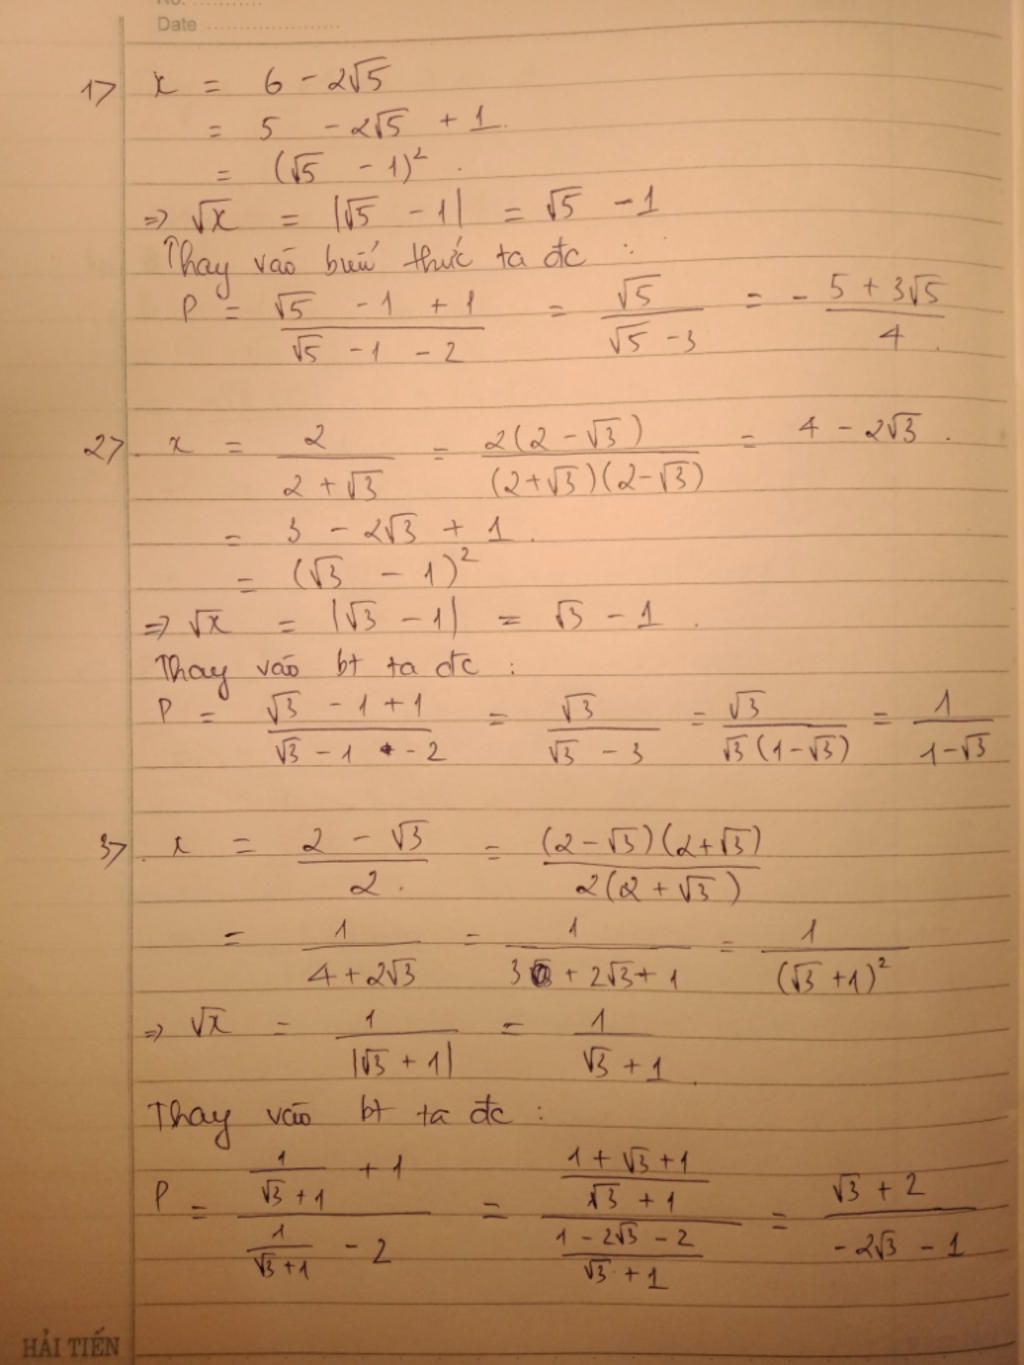 No. ............
Date ........................
1> x = 6 - 2√5
= 5 - 2√5 + 1.
= (√5 - 1)² .
=> √x = |√5 - 1| = √5 - 1
Thay vào biểu thức ta đc :
P = (√5 - 1 + 1)/(√5 - 1 - 2) = √5/(√5 - 3) = - (5 + 3√5)/4 .
2> x = 2/(2 + √3) = 2(2 - √3)/((2+√3)(2-√3)) = 4 - 2√3 .
= 3 - 2√3 + 1 .
= (√3 - 1)²
=> √x = |√3 - 1| = √3 - 1 .
Thay vào bt ta đc :
P = (√3 - 1 + 1)/(√3 - 1 - 2) = √3/(√3 - 3) = √3/(√3(1-√3)) = 1/(1-√3)
3> x = (2 - √3)/2 . = (2-√3)(2+√3)/(2(2 + √3))
= 1/(4 + 2√3) = 1/(3 + 2√3 + 1) = 1/(√3 + 1)²
=> √x = 1/|√3 + 1| = 1/(√3 + 1) .
Thay vào bt ta đc :
P = (1/(√3 + 1) + 1)/(1/(√3 + 1) - 2) = ((1 + √3 + 1)/(√3 + 1))/((1 - 2√3 - 2)/(√3 + 1)) = (√3 + 2)/(-2√3 - 1)
HẢI TIẾN